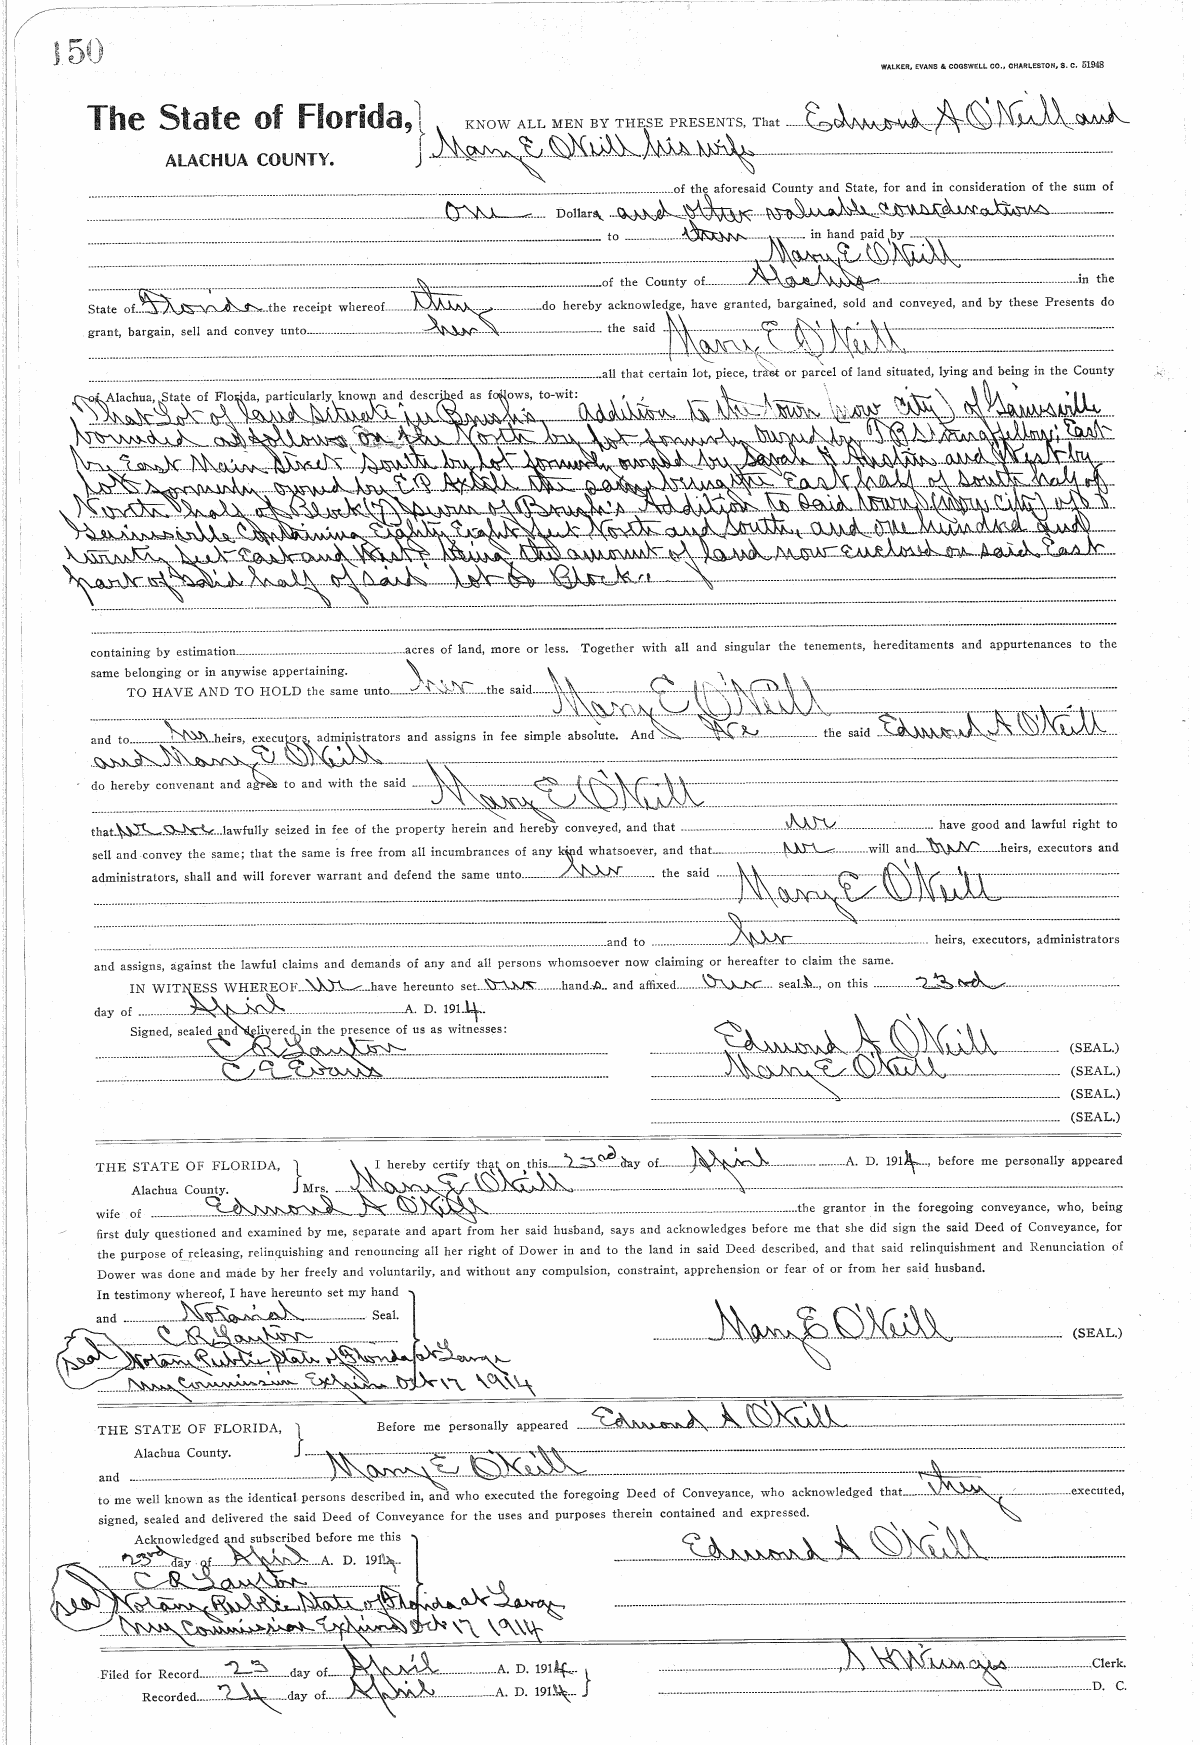 150
WALKER, EVANS & COGSWELL CO., CHARLESTON, S. C. 51948
The State of Florida, KNOW ALL MEN BY THESE PRESENTS, That Edmond A O'Neill and
ALACHUA COUNTY. Mary E O'Neill his wife
of the aforesaid County and State, for and in consideration of the sum of
One Dollars and other valuable considerations
to them in hand paid by
Mary E O'Neill
of the County of Alachua in the
State of Florida the receipt whereof they do hereby acknowledge, have granted, bargained, sold and conveyed, and by these Presents do
grant, bargain, sell and convey unto her the said Mary E O'Neill
all that certain lot, piece, tract or parcel of land situated, lying and being in the County
of Alachua, State of Florida, particularly known and described as follows, to-wit:
That Lot of land situate in Brush's Addition to the town (now City) of Gainsville
bounded as follows, on the North by lot formerly owned by T B Stringfellow; East
by East Main Street South by lot formerly owned by Sarah J Austin and West by
lot formerly owned by E P Axtell the same being the East half of South half of
North half of Block (7) Seven of Brush's Addition to said town (now City) of
Gainsville Containing Eighty Eight feet North and South, and one hundred and
twenty feet East and West: being the amount of land now enclosed on said East
part of said half of said lot or Block"
containing by estimation acres of land, more or less. Together with all and singular the tenements, hereditaments and appurtenances to the
same belonging or in anywise appertaining.
TO HAVE AND TO HOLD the same unto her the said Mary E O'Neill
and to her heirs, executors, administrators and assigns in fee simple absolute. And We the said Edmond A O'Neill
and Mary E O'Neill
do hereby convenant and agree to and with the said Mary E O'Neill
that we are lawfully seized in fee of the property herein and hereby conveyed, and that we have good and lawful right to
sell and convey the same; that the same is free from all incumbrances of any kind whatsoever, and that we will and our heirs, executors and
administrators, shall and will forever warrant and defend the same unto her the said Mary E O'Neill
and to her heirs, executors, administrators
and assigns, against the lawful claims and demands of any and all persons whomsoever now claiming or hereafter to claim the same.
IN WITNESS WHEREOF We have hereunto set our hands and affixed our seals, on this 23rd
day of April A. D. 1914.
Signed, sealed and delivered in the presence of us as witnesses:
C R Layton Edmond A O'Neill (SEAL.)
C E Evans Mary E O'Neill (SEAL.)
(SEAL.)
(SEAL.)
THE STATE OF FLORIDA, I hereby certify that on this 23rd day of April A. D. 1914, before me personally appeared
Alachua County. Mrs. Mary E O'Neill
wife of Edmond A O'Neill the grantor in the foregoing conveyance, who, being
first duly questioned and examined by me, separate and apart from her said husband, says and acknowledges before me that she did sign the said Deed of Conveyance, for
the purpose of releasing, relinquishing and renouncing all her right of Dower in and to the land in said Deed described, and that said relinquishment and Renunciation of
Dower was done and made by her freely and voluntarily, and without any compulsion, constraint, apprehension or fear of or from her said husband.
In testimony whereof, I have hereunto set my hand
and Notarial Seal.
C R Layton Mary E O'Neill (SEAL.)
seal Notary Public State of Florida at Large
My Commission Expires Oct 17 1914
THE STATE OF FLORIDA, Before me personally appeared Edmond A O'Neill
Alachua County.
and Mary E O'Neill
to me well known as the identical persons described in, and who executed the foregoing Deed of Conveyance, who acknowledged that they executed,
signed, sealed and delivered the said Deed of Conveyance for the uses and purposes therein contained and expressed.
Acknowledged and subscribed before me this
23rd day of April A. D. 1914. Edmond A O'Neill
C R Layton
seal Notary Public State of Florida at Large
My Commission Expires Oct 17 1914
Filed for Record 23 day of April A. D. 1914 S H Wienges Clerk.
Recorded 24 day of April A. D. 1914 D. C.